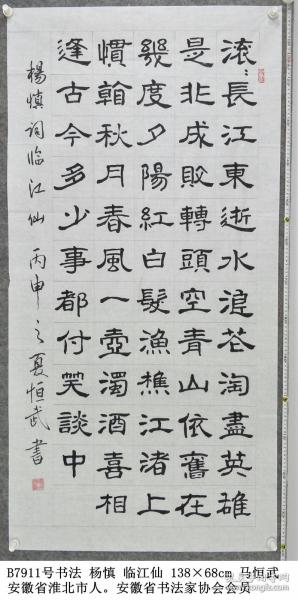 滚〻長江東逝水浪花淘盡英雄
是非成敗轉頭空青山依舊在
幾度夕陽紅白髮漁樵江渚上
慣看秋月春風一壺濁酒喜相
逢古今多少事都付笑談中
楊慎词临江仙 丙申之夏恒武書
B7911号书法 杨慎 临江仙 138×68cm 马恒武
安徽省淮北市人。安徽省书法家协会会员